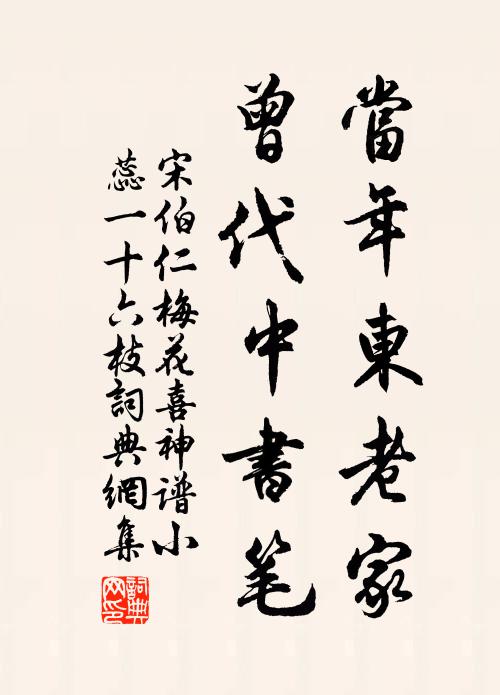 當年東老家
曾代中書笔
宋伯仁梅花喜神谱小
蕊一十六枝詞典網集
詞典网印